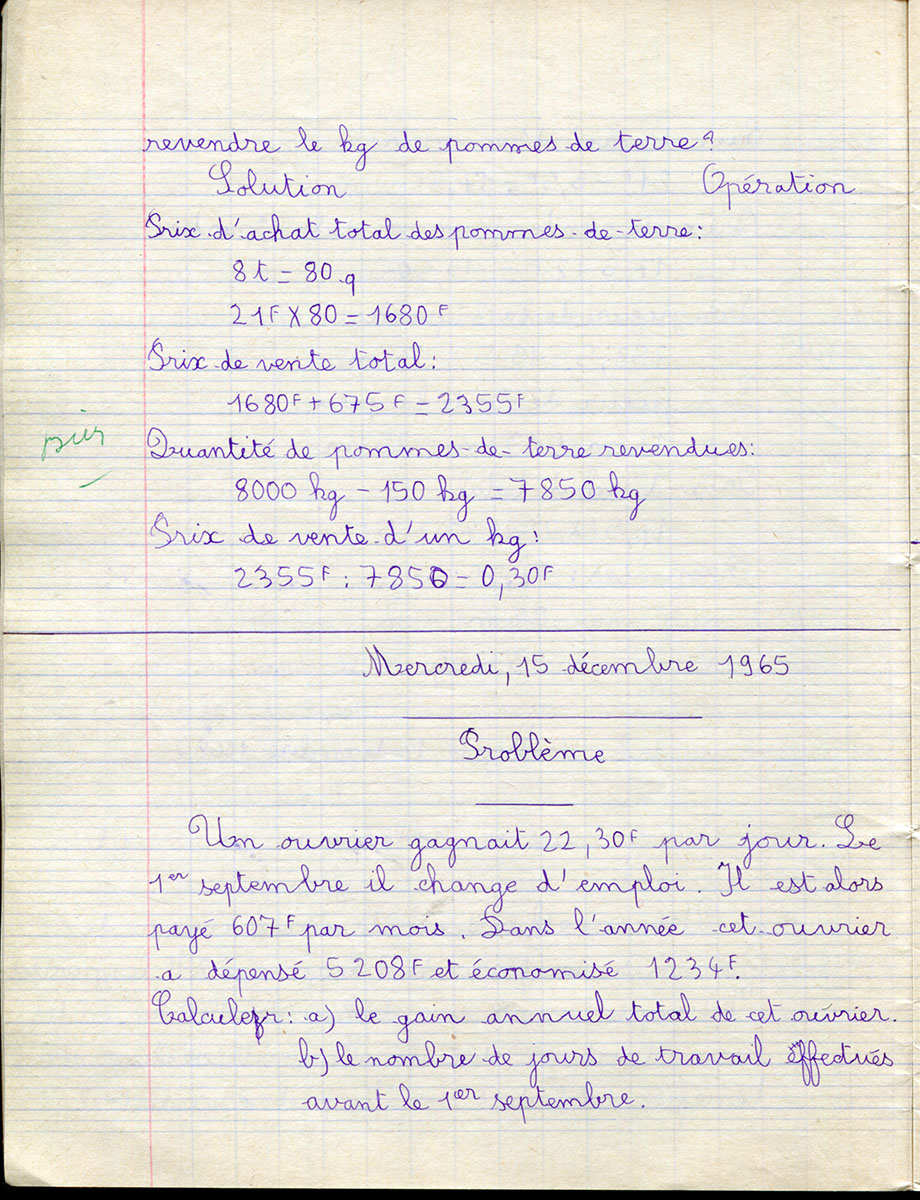 revendre le kg de pommes-de terre?
Solution Opération
Prix d'achat total des pommes-de-terre:
8t = 80 q
21F X 80 = 1680 F
Prix de vente total:
1680F + 675 F = 2355F
Quantité de pommes-de-terre revendues:
8000 kg - 150 kg = 7850 kg
Prix de vente d'un kg:
2355F : 7850 = 0,30F
Mercredi, 15 décembre 1965
Problème
Un ouvrier gagnait 22,30F par jour. Le
1er septembre il change d'emploi. Il est alors
payé 607F par mois. Dans l'année cet ouvrier
a dépensé 5208F et économisé 1234F.
Calculer: a) le gain annuel total de cet ouvrier.
b) le nombre de jours de travail effectués
avant le 1er septembre.